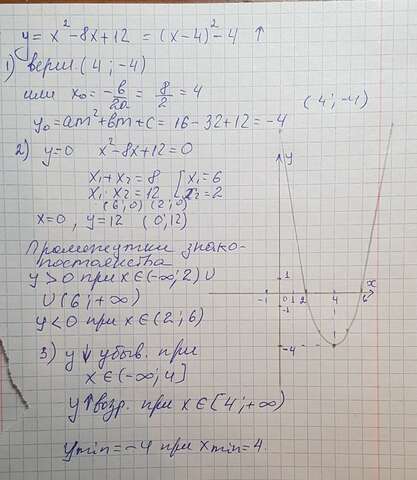 y = x² - 8x + 12 = (x-4)² - 4 ↑
1) верш (4 ; -4)
или x₀ = -b/2a = 8/2 = 4
y₀ = am² + bm + c = 16 - 32 + 12 = -4
(4 ; -4)
2) y=0 x² - 8x + 12 = 0
x₁ + x₂ = 8 [ x₁ = 6
x₁ · x₂ = 12 x₂ = 2
(6 ; 0) (2 ; 0)
x=0 , y=12 (0 ; 12)
Промежутки знако-
постоянства
y > 0 при x ∈ (-∞; 2) U
U (6 ; +∞)
y < 0 при x ∈ (2 ; 6)
3) y ↓ убыв. при
x ∈ (-∞; 4]
y ↑ возр. при x ∈ [4 ; +∞)
y min = -4 при x min = 4.
y
x
1
-1 0 1 2 4 6
-1
-4